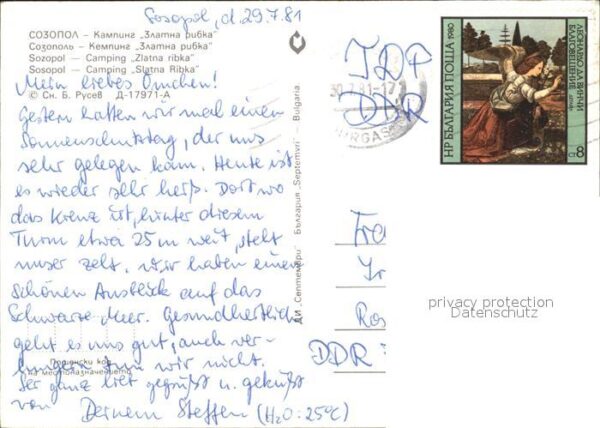 Sozopol, d. 29.7.81
СОЗОПОЛ – Кампинг „Златна рибка"
Созополь – Кемпинг „Златна рибка"
Sozopol – Camping "Zlatna ribka"
Sosopol – Camping "Slatna Ribka"
Mein liebes Omchen!
© Сн. Б. Русев Д-17971-А
Gestern hatten wir mal einen
Sonnenschutztag, der uns
sehr gelegen kam. Heute ist
es wieder sehr heiß. Dort wo
das Kreuz ist, hinter diesem
Turm etwa 25m weit, steht
unser Zelt. Wir haben einen
schönen Ausblick auf das
Schwarze Meer. Gesundheitlich
geht es uns gut, auch ver-
hungern tun wir nicht.
Пощенски код
на местоназначението
Sei ganz lieb gegrüßt u. geküßt
von Deinem Steffen (H₂O: 25°C)
ДИ „Септември" България „Septemvri" – Bulgaria
DDR
30.7.81-17
BURGAS
НР БЪЛГАРИЯ ПОЩА 1980
ЛЕОНАРДО ДА ВИНЧИ
БЛАГОВЕЩЕНИЕ
8
Fra
Ro
DDR
privacy protection
Datenschutz